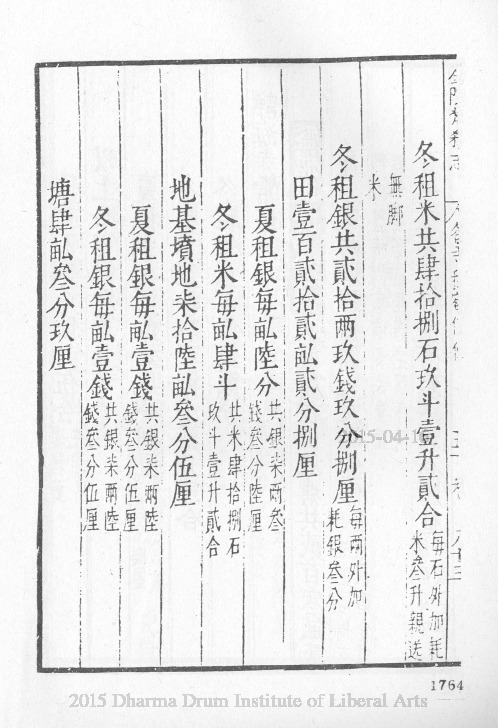 冬租米共肆拾捌石玖斗壹升貳合每石外加耗米叁升親送
無腳米
冬租銀共貳拾兩玖錢玖分捌厘每兩外加耗銀叁分
田壹百貳拾貳畆貳分捌厘
夏租銀每畆陸分共銀柒兩叁錢叁分陸厘
冬租米每畆肆斗共米肆拾捌石玖斗壹升貳合
地基墳地柒拾陸畆叁分伍厘
夏租銀每畆壹錢共銀柒兩陸錢叁分伍厘
冬租銀每畆壹錢共銀柒兩陸錢叁分伍厘
塘肆畆叁分玖厘
2015-04-1
1764
2015 Dharma Drum Institute of Liberal Arts